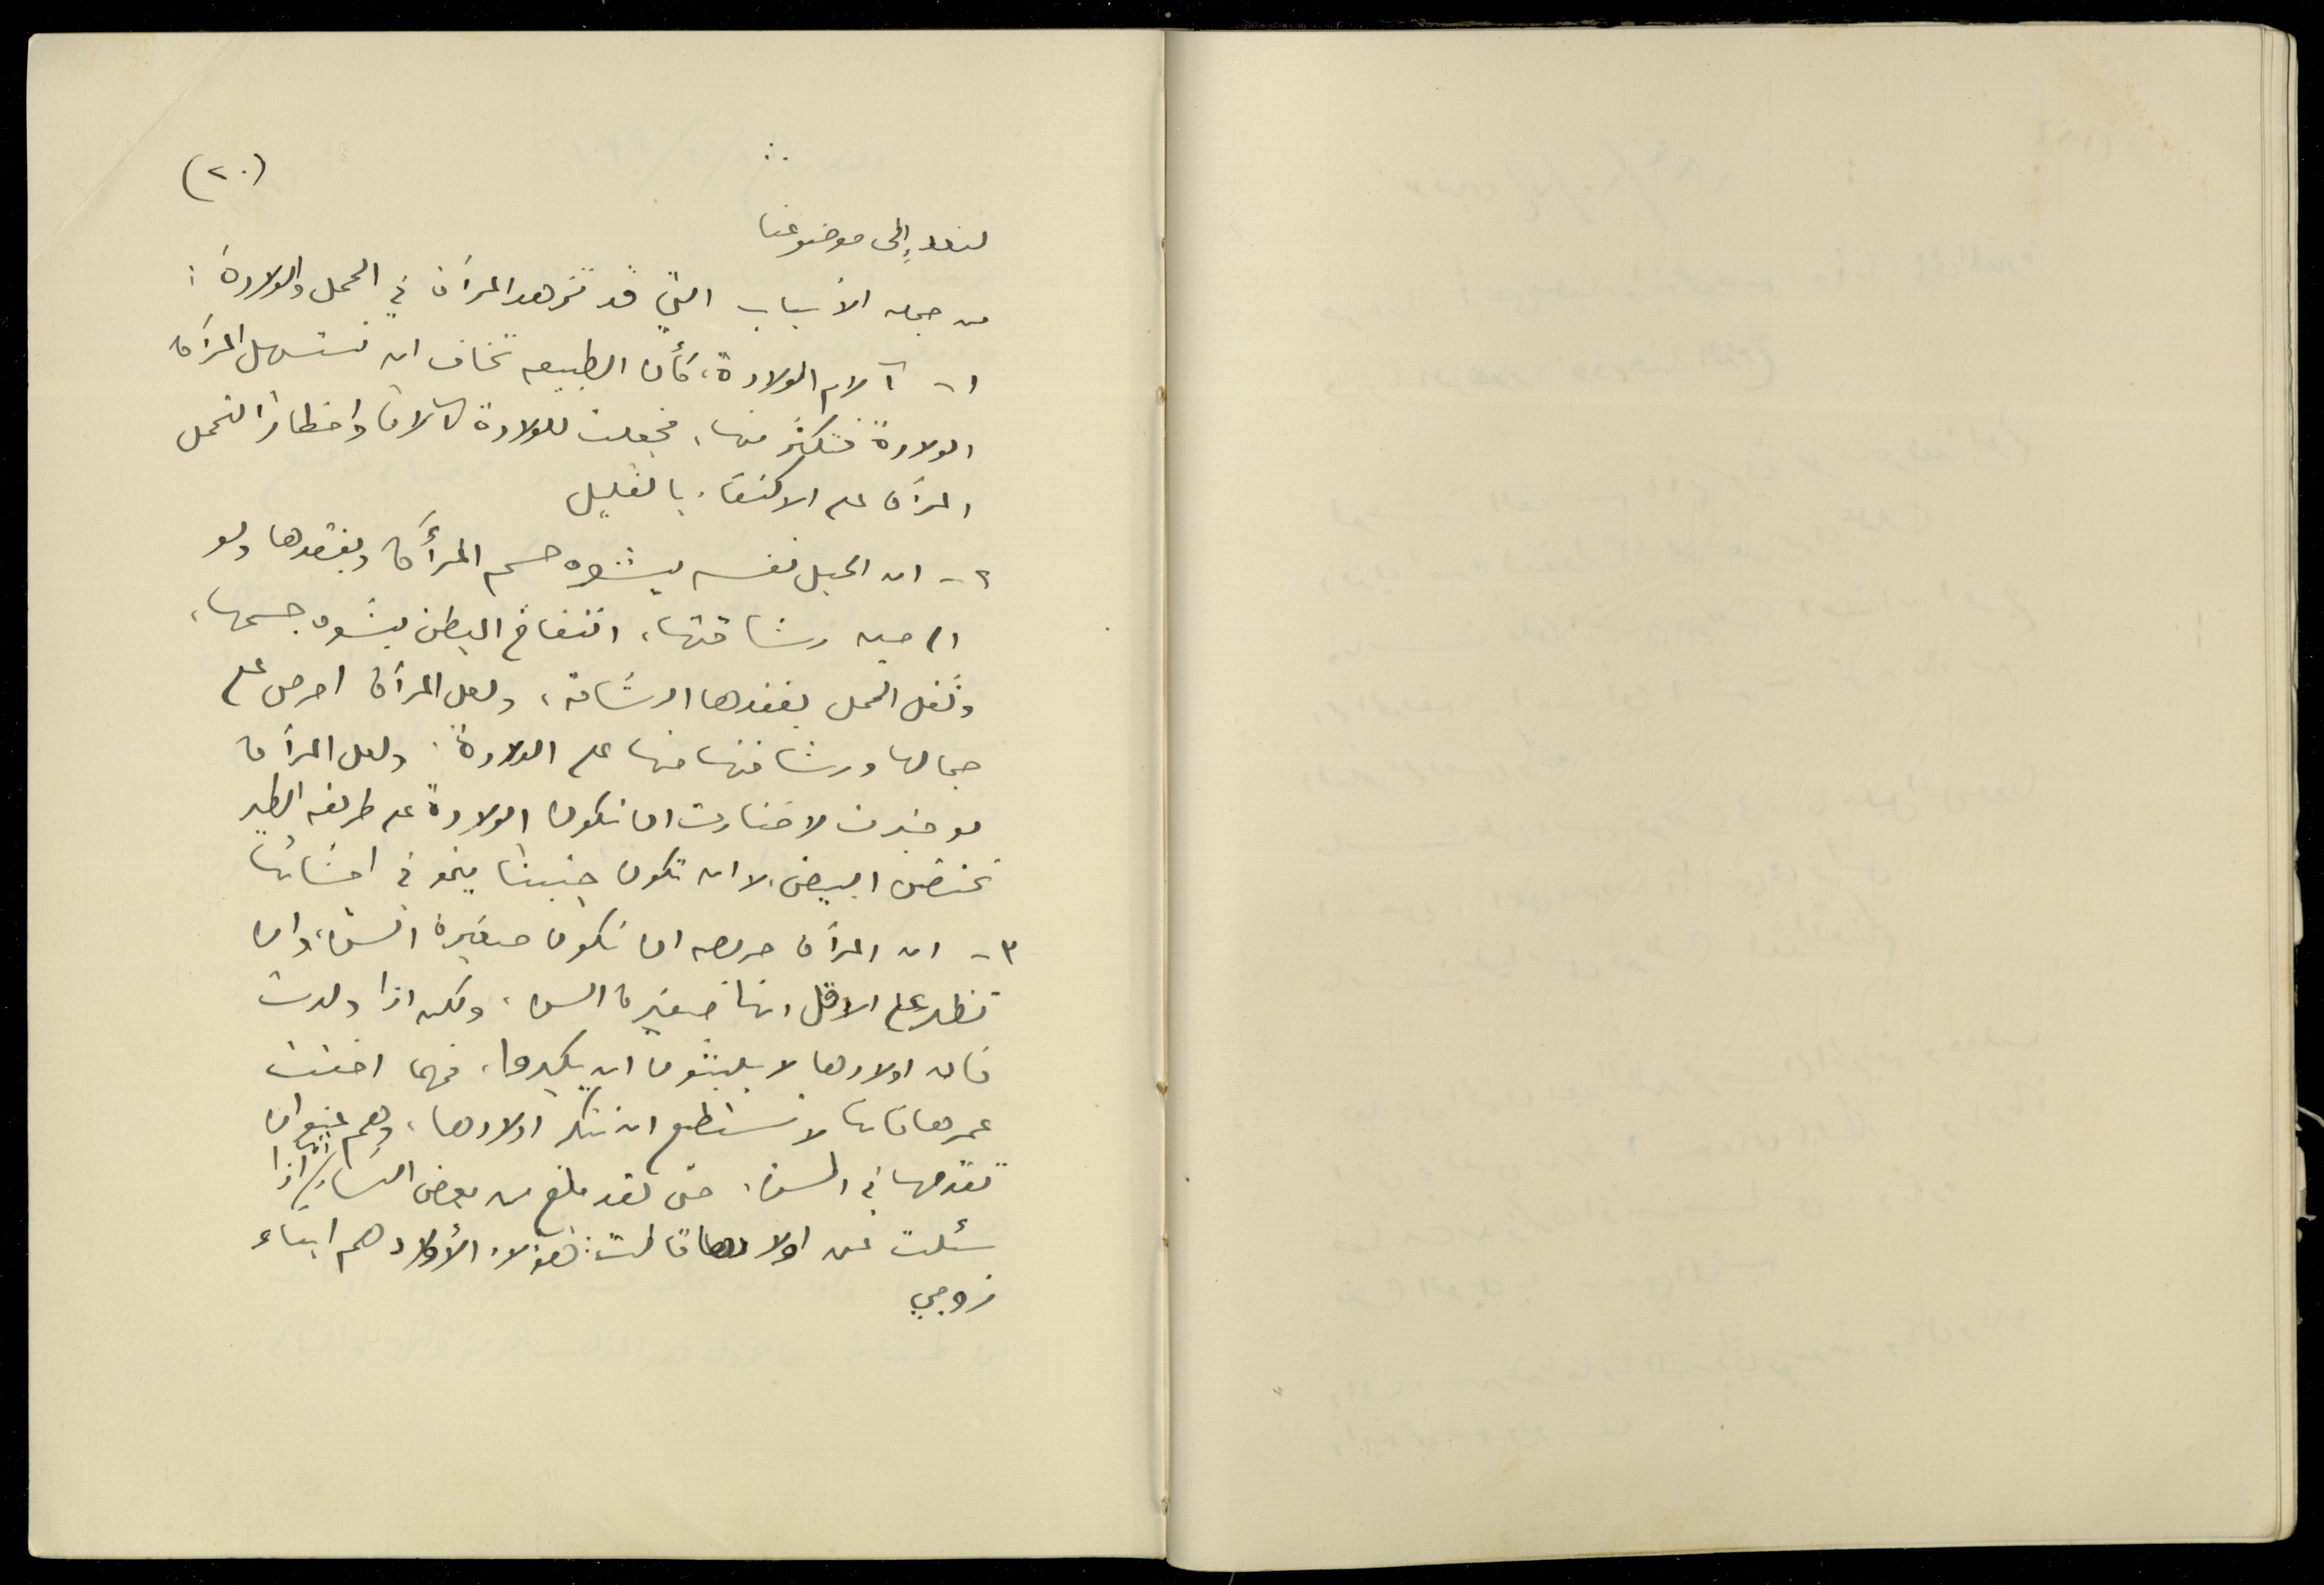 (٢٠)
لنعد إلى موضوعنا
من جملة الأسباب التي قد تزهد المرأة في الحمل والولادة :
١- آلام الولادة، كأن الطبيعه تخاف ان تستسهل المرأة
الولادة فتكثر منها، فجعلت للولادة آلاما واخطارا لتحمل
المرأة على الاكتفاء بالقليل
٢- ان الحبل نفسه يشوه جسم المرأة ويفقدها ولو
الى حين رشاقتها، انتفاخ البطن يشوه جسمها،
وثقل الحمل يفقدها الرشاقة، ولعل المرأة احرص على
جمالها ورشاقتها منها على الولادة. ولعل المرأة
لو خيرت لاختارت ان تكون الولادة على طريقة الطير
تحتضن البيض، لا ان تكون جنينا ينمو في احشائها
٣- ان المرأة حريصه ان تكون صغيرة السن، وان
تظهر على الاقل انها صغيرة السن، ولكن اذا ولدت
فان اولادها لا يلبثون ان يكبروا، فمهما اخفت
عمرها فانها لا تستطيع ان تنكر اولادها، وهم عنوان
تقدمها في السن. حتى لقد بلغ من بعض النساء انها اذا
سئلت عن اولادها قالت: هؤلاء الأولاد هم ابناء
زوجي